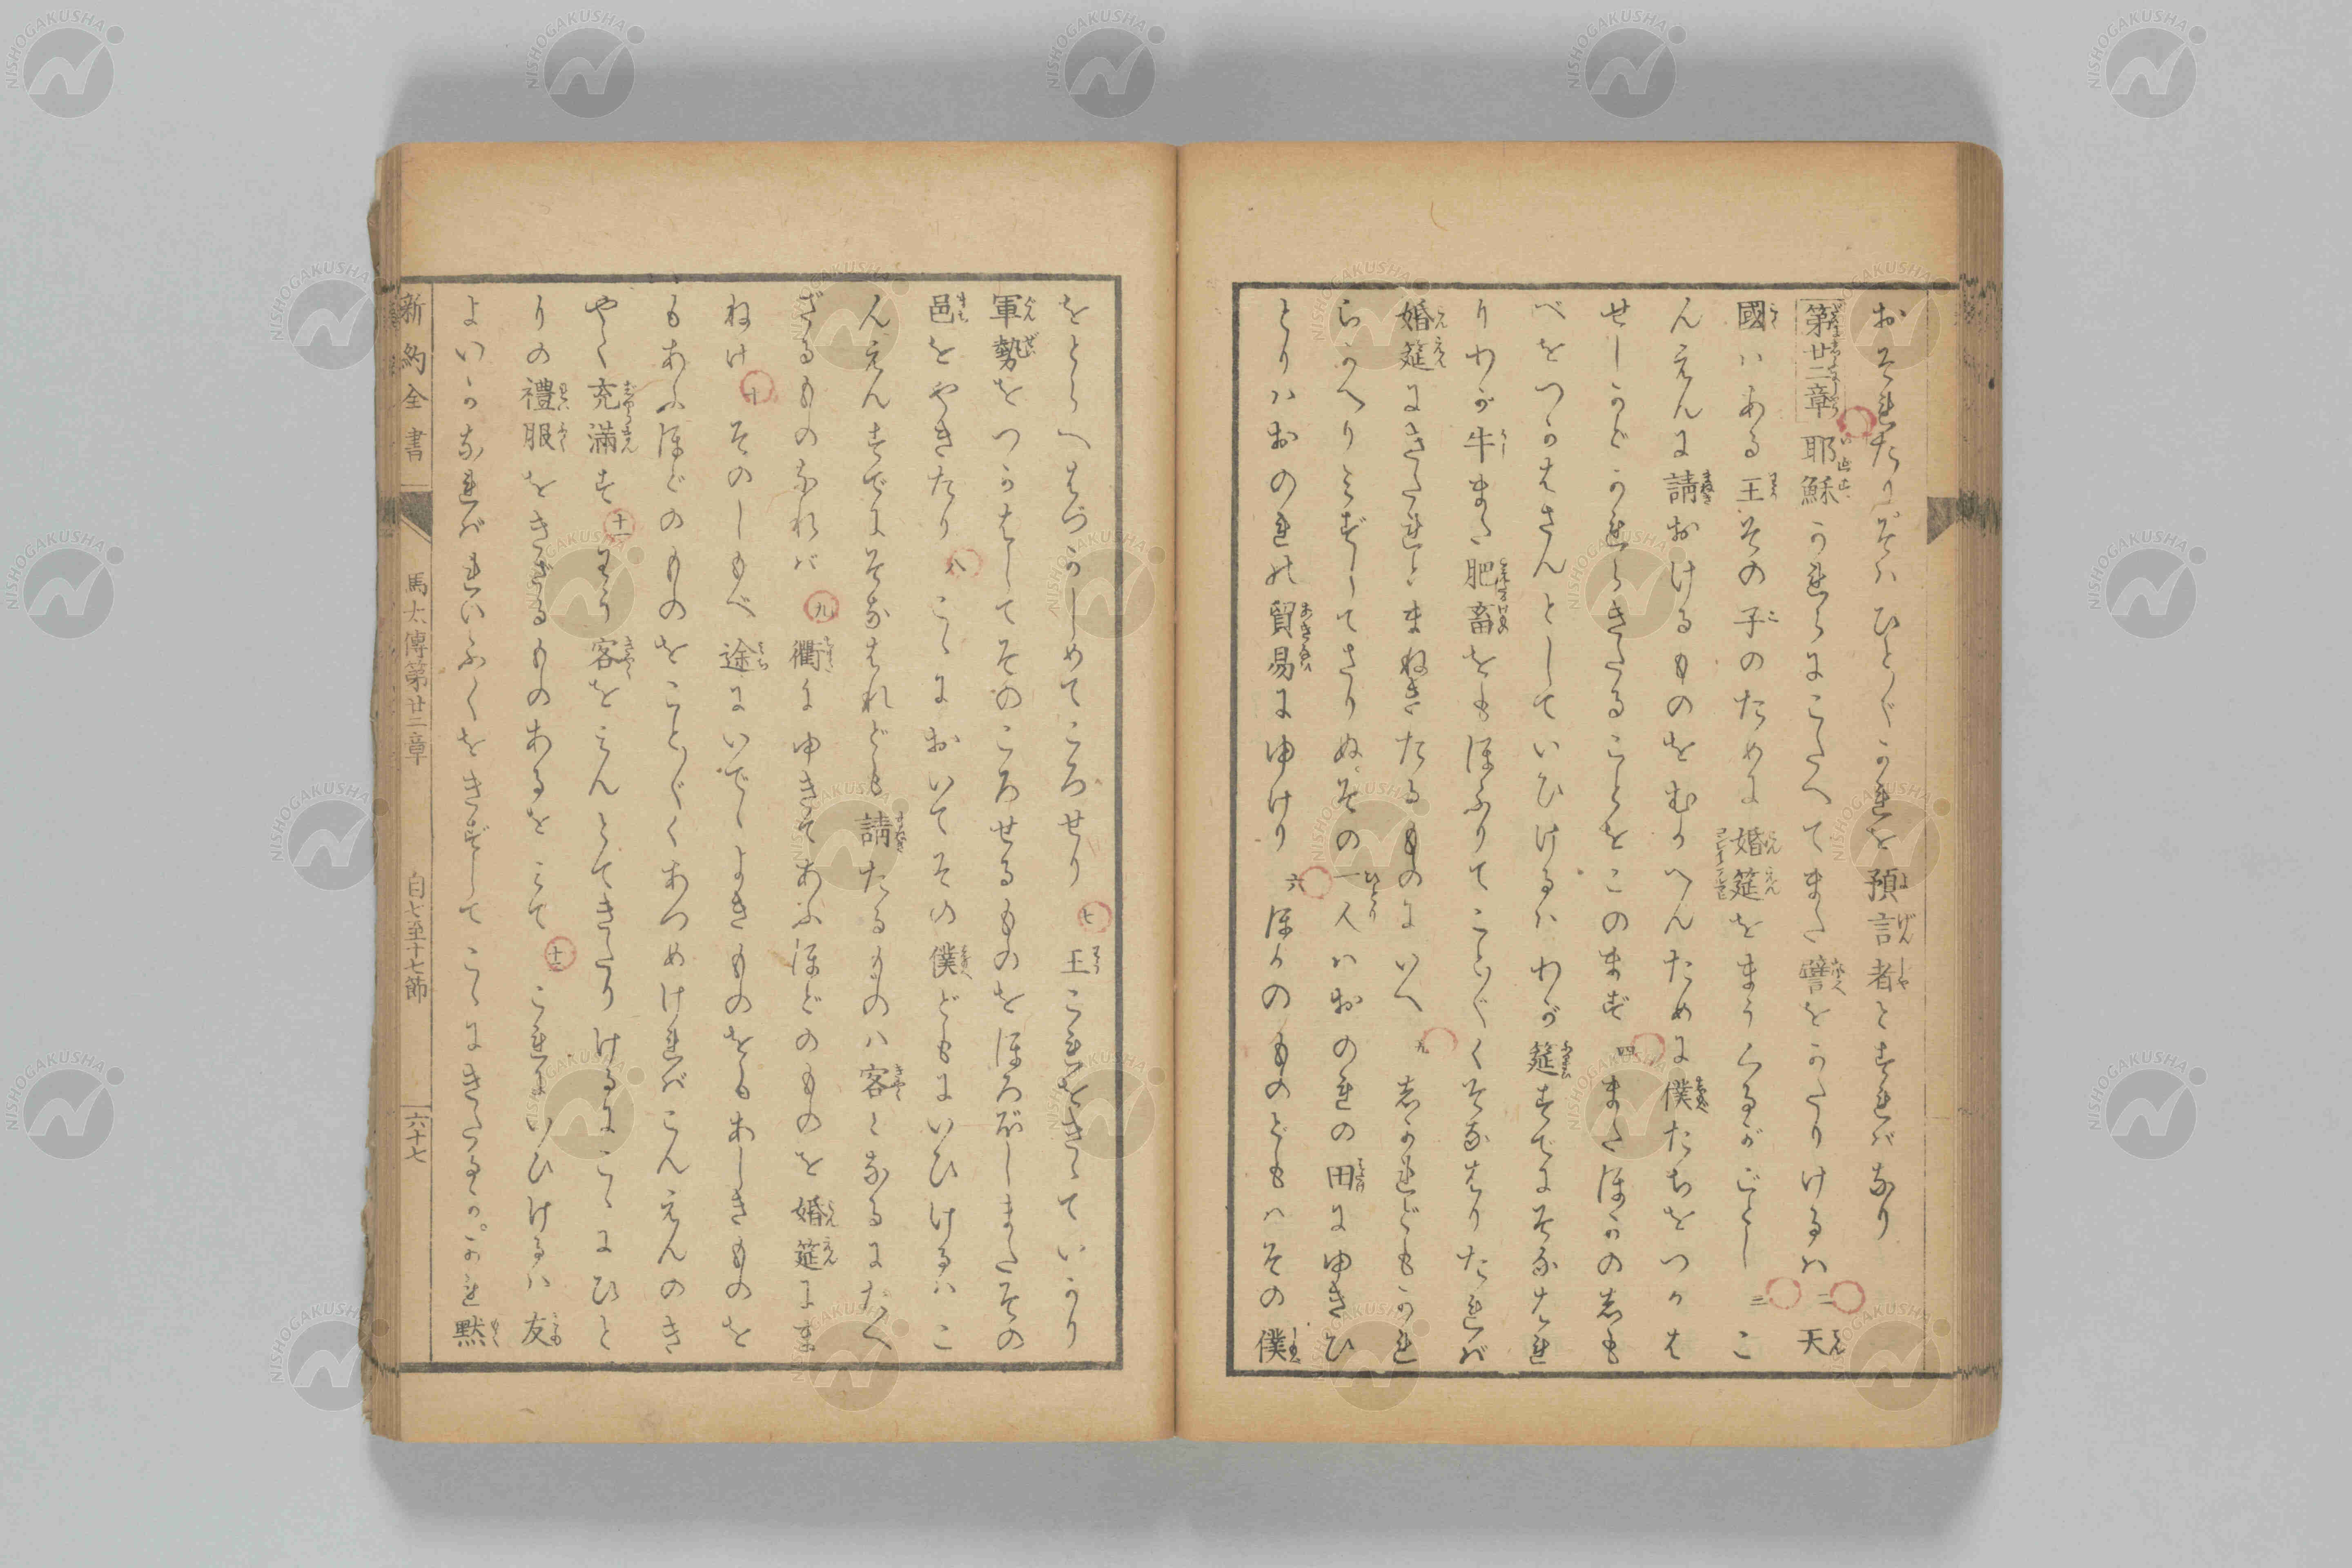 おそれたりそハひと〴〵かれを預言者とすれバなり
第廿二章 耶穌かれらにこたへてまた譬をかたりけるハ 二 天
國ハある王その子のために婚筵をまうくるがごとし 三 こ
んえんに請おけるものをむかへんために僕たちをつかは
せしかどかれらきたることをこのまず 四 またほかのしも
べをつかはさんとしていひけるハわが筵すでにそなはれ
りわが牛また肥畜をもほふりてこと〴〵くそなはりたれバ
婚筵にきたれとまねきたるものにいへ 五 しかれどもかれ
らかへりみずしてさりぬその一人ハおのれの田にゆきひ
とりハおのれの貿易にゆけり 六 ほかのものどもハその僕
をとらへはづかしめてころせり 七 王これをきゝていかり
軍勢をつかはしてそのころせるものをほろぼしまたその
邑をやきたり 八 こゝにおいてその僕どもにいひけるハこ
んえんすでにそなはれども請たるものハ客となるにたへ
ざるものなれバ 九 衢にゆきてあふほどのものを婚筵にま
ねけ 十 そのしもべ途にいでゝよきものをもあしきものを
もあふほどのものをこと〴〵くあつめけれバこんえんのき
やく充滿す 十一 わう客をみんとてきたりけるにこゝにひと
りの禮服をきざるものあるをみて 十二 これにいひけるハ友
よいかなれバれいふくをきずしてこゝにきたるか。かれ黙
新約全書
馬太傳第廿二章
自七至十七節
六十七
NISHOGAKUSHA